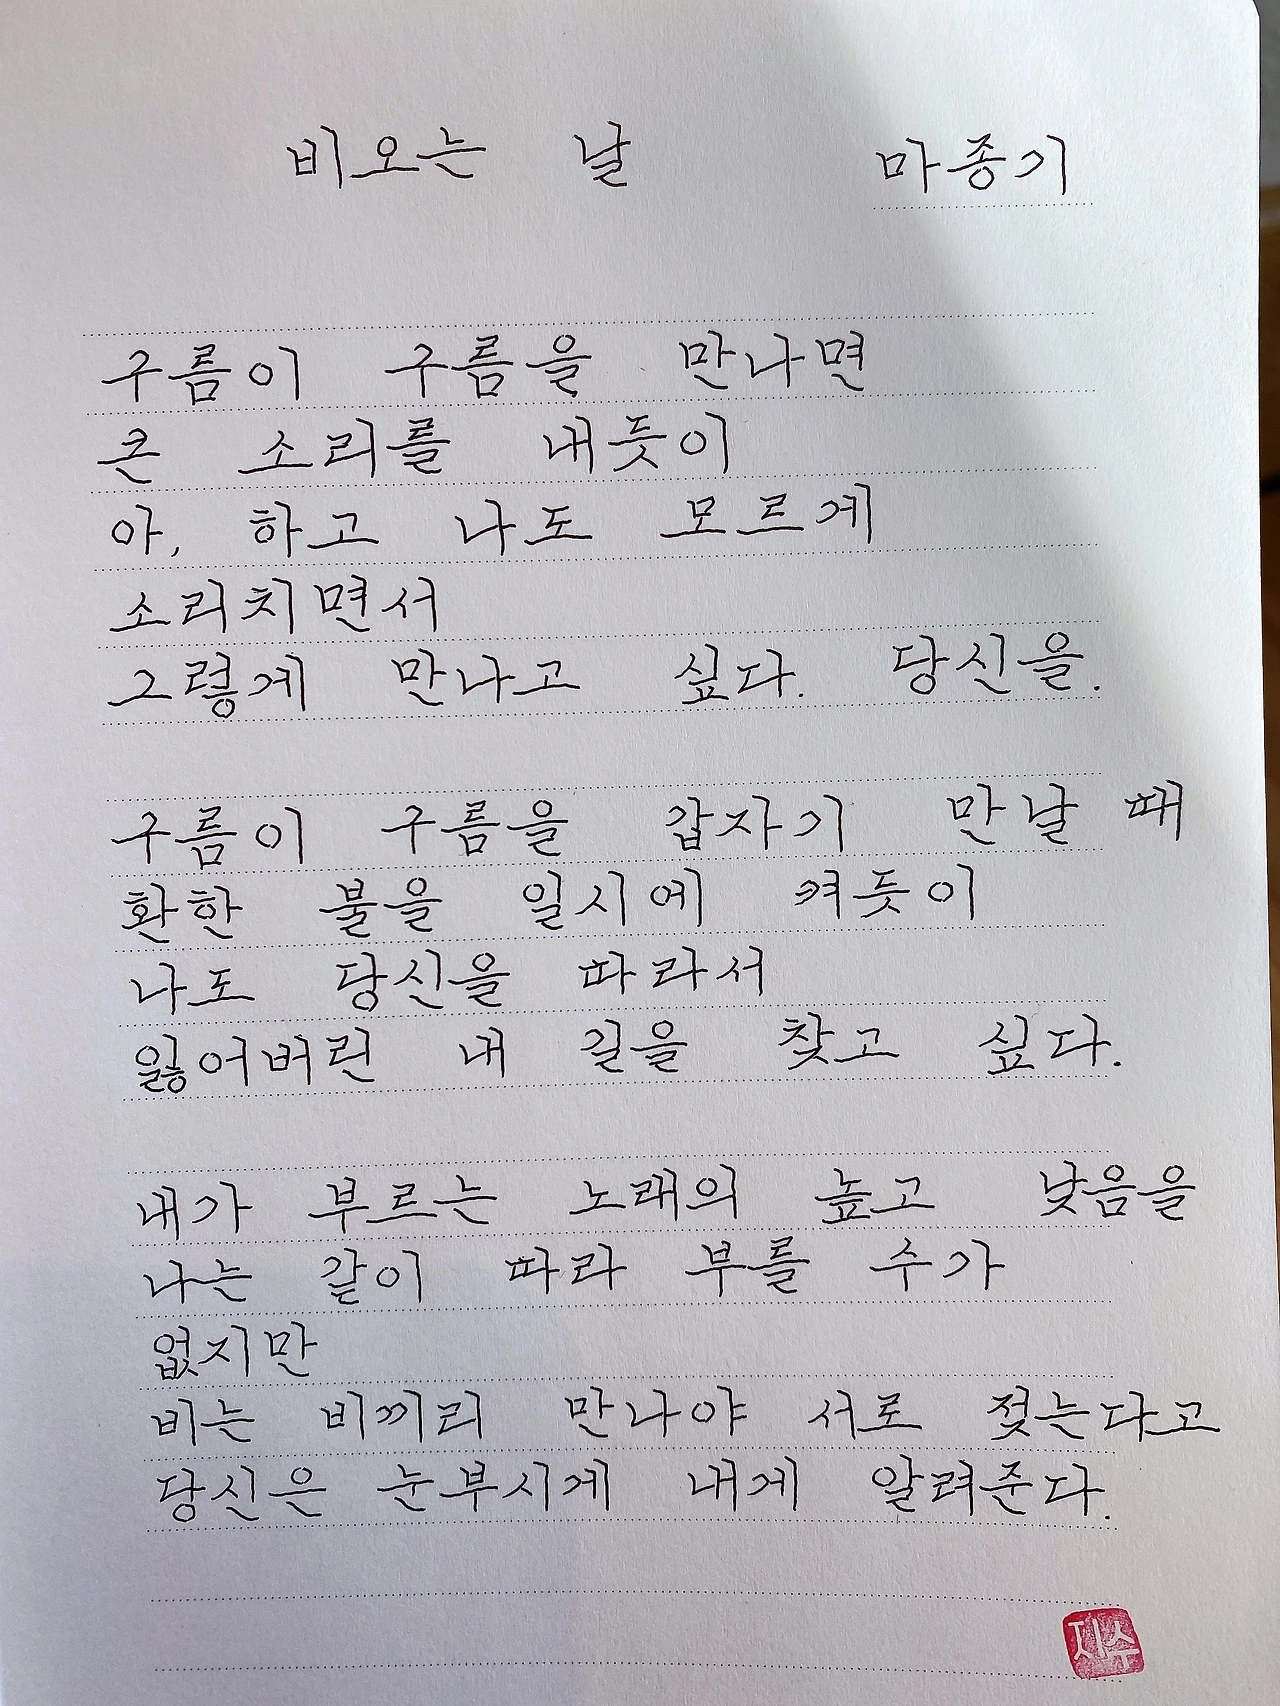 비오는 날 마종기
구름이 구름을 만나면
큰 소리를 내듯이
아, 하고 나도 모르게
소리치면서
그렇게 만나고 싶다. 당신을.
구름이 구름을 갑자기 만날 때
환한 불을 일시에 켜듯이
나도 당신을 따라서
잃어버린 내 길을 찾고 싶다.
내가 부르는 노래의 높고 낮음을
나는 같이 따라 부를 수가
없지만
비는 비끼리 만나야 서로 젖는다고
당신은 눈부시게 내게 알려준다.
지수